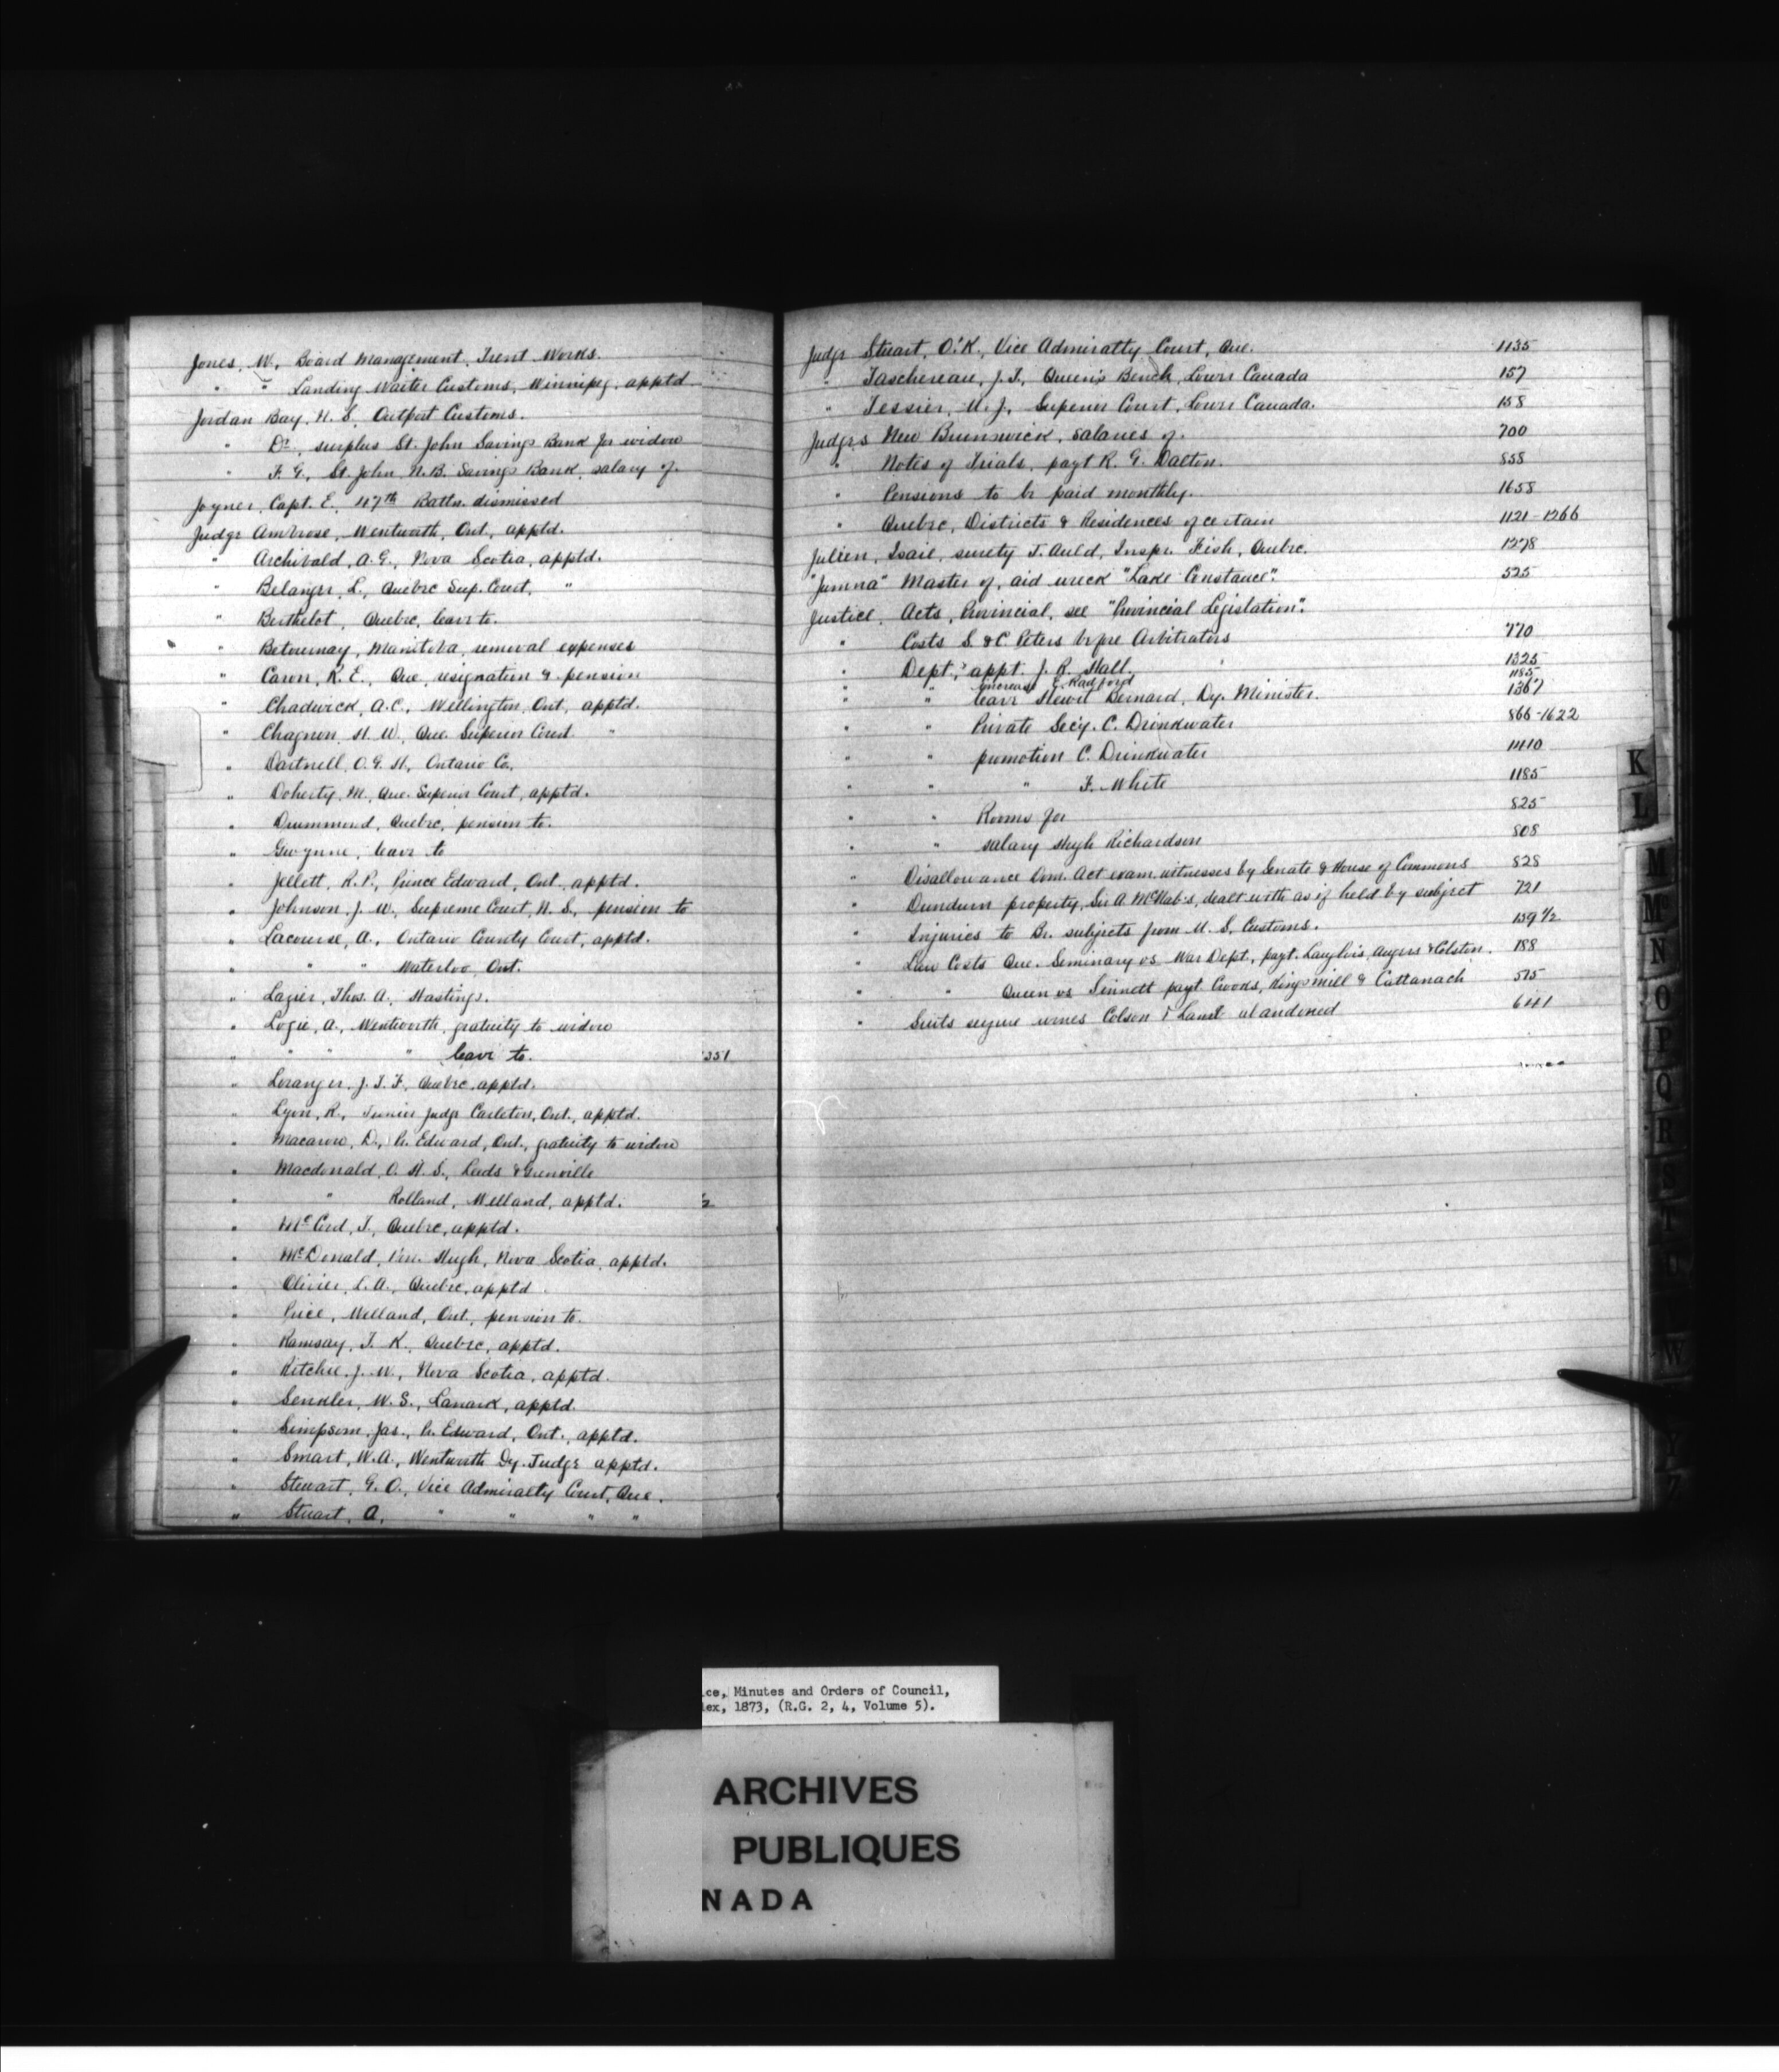 Jones, W., Board Management, Trent Works.
" " Landing Waiter Customs, Winnipeg, apptd
Jordan Bay, N.S. Outport Customs.
" Dr., surplus St. John Savings Bank for widow
" F. G., St. John N.B. Savings Bank, salary of.
Joyner, Capt. E., 47th Battn. dismissed
Judge Ambrose, Wentworth, Ont., apptd.
" Archibald, A.G., Nova Scotia, apptd.
" Belanger, L., Quebec Sup. Court, "
" Berthelot, Quebec, leave to.
" Betournay, Manitoba, removal expenses
" Caron, R. E., Que, resignation & pension
" Chadwick, A.C., Wellington, Ont, apptd.
" Chagnon, H. W., Que. Superior Court "
" Dartnell, O. G. H., Ontario Co.,
" Doherty, M., Que. Superior Court, apptd.
" Drummond, Quebec, pension to.
" Gwynne, leave to
" Jellett, R.P., Prince Edward, Ont., apptd.
" Johnson, J. W., Supreme Court, N. S., pension to
" Lacourse, A., Ontario County Court, apptd.
" " " Waterloo, Ont.
" Lazier, Thos. A., Hastings.
" Logie, A., Wentworth, gratuity to widow
" " " " leave to. 351
" Loranger, J. T. F., Quebec, apptd.
" Lyon, R., Junior Judge Carleton, Ont., apptd.
" Macarow, D., Pr. Edward, Ont., gratuity to widow
" Macdonald, O. H. S., Leeds & Grenville
" " Rolland, Welland, apptd. ½
" McCord, T., Quebec, apptd.
" McDonald, Hon. Hugh, Nova Scotia, apptd.
" Olivier, L. A., Quebec, apptd.
" Price, Welland, Ont., pension to.
" Ramsay, T. K., Quebec, apptd.
" Ritchie, J. W., Nova Scotia, apptd.
" Senkler, W. S., Lanark, apptd.
" Simpson, Jas., Pr. Edward, Ont., apptd.
" Smart, W.A., Wentworth Dy. Judge apptd.
" Stewart, G. O., Vice Admiralty Court, Que.
" Stuart, A. " " " "
Judge Stuart, O'K., Vice Admiralty Court, Que. 1135
" Taschereau, J.T., Queen's Bench, Lower Canada 157
" Tessier, U. J., Superior Court, Lower Canada. 158
Judges New Brunswick, salaries of. 700
" Notes of Trials, payt R. G. Dalton. 858
" Pensions to be paid monthly. 1658
" Quebec, Districts & Residences of certain 1121-1266
Julien, Isaie, surety T. Auld, Inspr. Fish, Quebec. 1278
"Jumna" Master of, aid wreck "Lake Constance". 525
Justice, Acts, Provincial, see "Provincial Legislation".
" Costs S. & C Peters before Arbitrators 770
" Dept., appt. J. R. Hall. 1325
" " increase E. Radford 1185
" " leave Hewitt Bernard, Dy. Minister. 1367
" " Private Secy. C. Drinkwater 866-1622
" " promotion C. Drinkwater 1410
" " " F. White 1185
" " Rooms for 825
" " salary Hugh Richardson 808
" Disallowance Dom. Act exam. witnesses by Senate & House of Commons 828
" Dundurn property, Sir A. McNab's, dealt with as if held by subject 721
" Injuries to Br. subjects from U. S. Customs. 139½
" Law Costs Que. Seminary vs War Dept., payt. Langlois, Angers & Colston. 188
" " Queen vs Sinnott payt Crooks, Kingsmill & Cattanach 515
" Suits seizure wines Colson & Lamb abandoned 641
K
L
M
Mc
N
O
P
Q
R
S
T
W
Y
Z
ce, Minutes and Orders of Council,
ex, 1873, (R.G. 2, 4, Volume 5).
ARCHIVES
PUBLIQUES
NADA